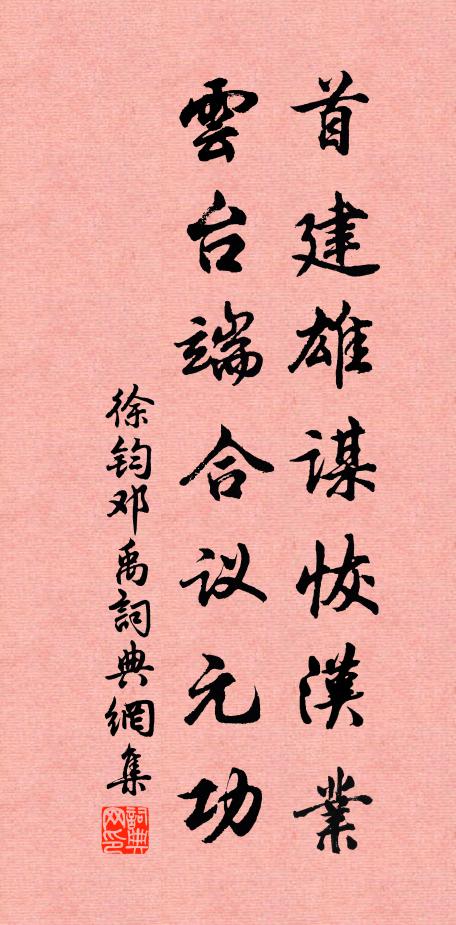 首建雄謀恢漢業
雲台端合议元功
徐钧邓禹詞典網集
詞典网印